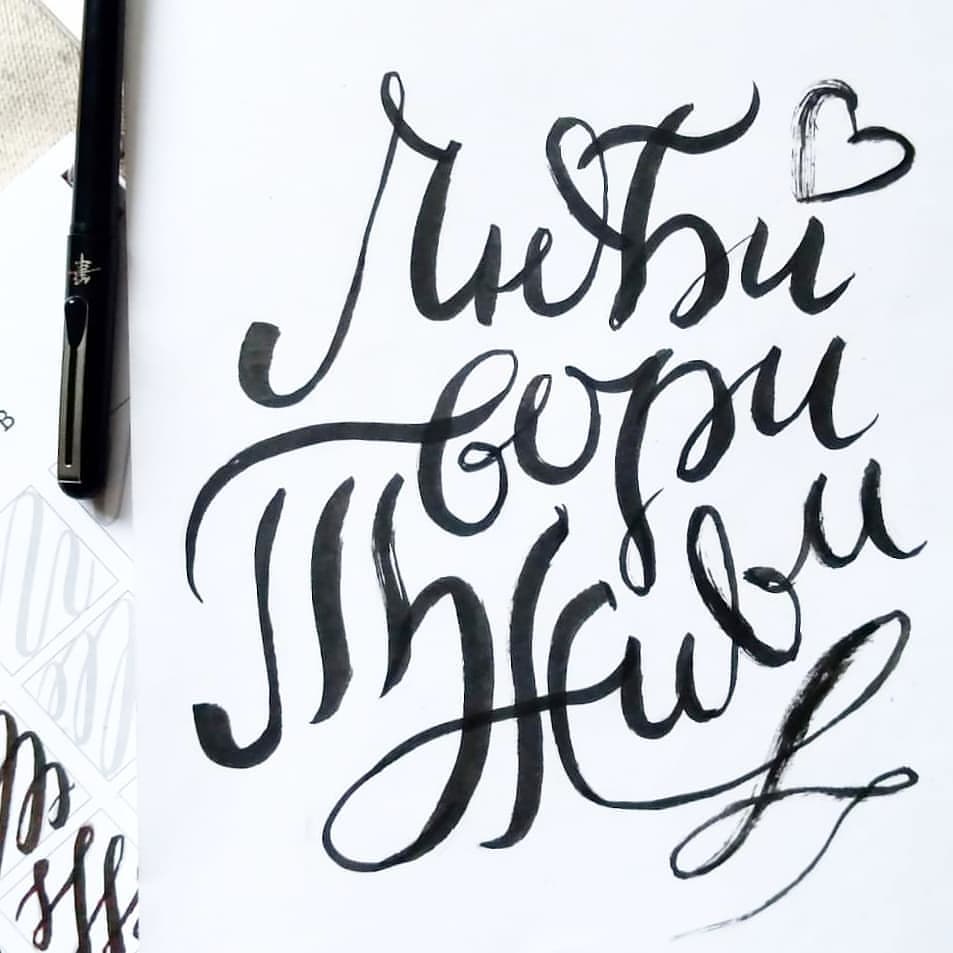 Люби
Твори
Живи
В